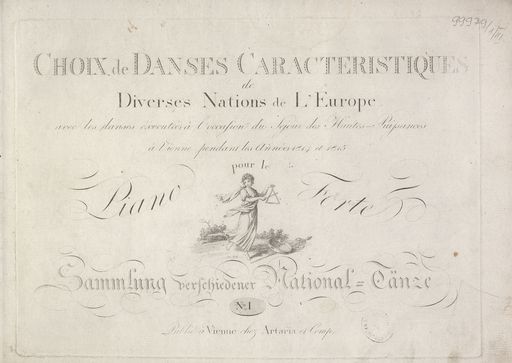 99979/I/III
CHOIX, de DANSES CARACTERISTIQUES
de
Diverses Nations de L'Europe
avec les danses executées à l'occasion du Sejour des Hautes-Puissances
à Vienne pendant les Années 1814 et 1815
pour le
Piano Forte
Sammlung verschiedener National=Tänze
No. I
Publié à Vienne chez Artaria et Comp.